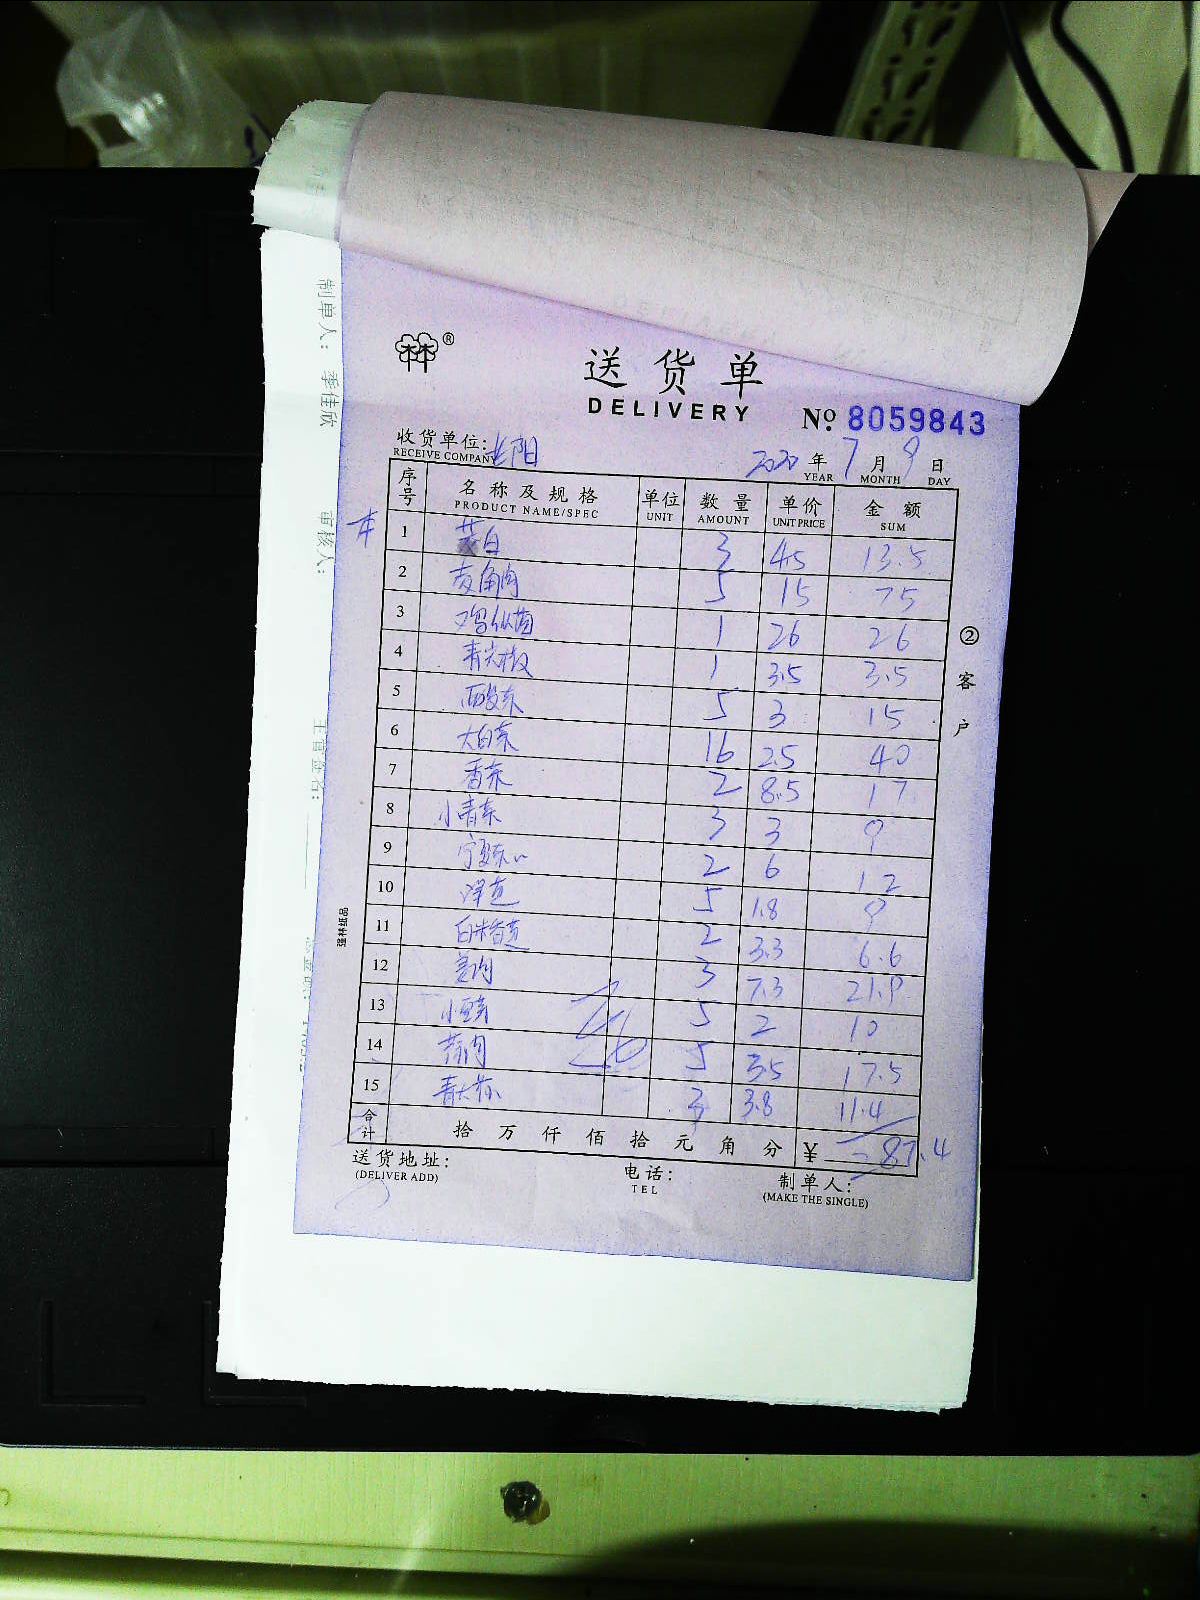 林®
送货单
DELIVERY № 8059843
收货单位: 长阳 2020 年 7 月 9 日
RECEIVE COMPANY YEAR MONTH DAY
序号 名称及规格 单位 数量 单价 金额
PRODUCT NAME/SPEC UNIT AMOUNT UNIT PRICE SUM
1 茭白 3 4.5 13.5
2 菱角肉 5 15 75
3 鸡纵菌 1 26 26
4 青尖椒 1 3.5 3.5
5 酸菜 5 3 15
6 大白菜 16 2.5 40
7 香菜 2 8.5 17
8 小青菜 3 3 9
9 宁夏菜心 2 6 12
10 洋芋 5 1.8 9
11 2 3.3 6.6
12 姜肉 3 7.3 21.9
13 5 2 10
14 蒜肉 5 3.5 17.5
15 青大蒜 3 3.8 11.4
合计 拾万仟佰拾元角分 ¥ 287.4
送货地址: 电话: 制单人:
(DELIVER ADD) TEL (MAKE THE SINGLE)
②客户
强林纸品
制单人: 季佳欣
审核人:
主管签名: